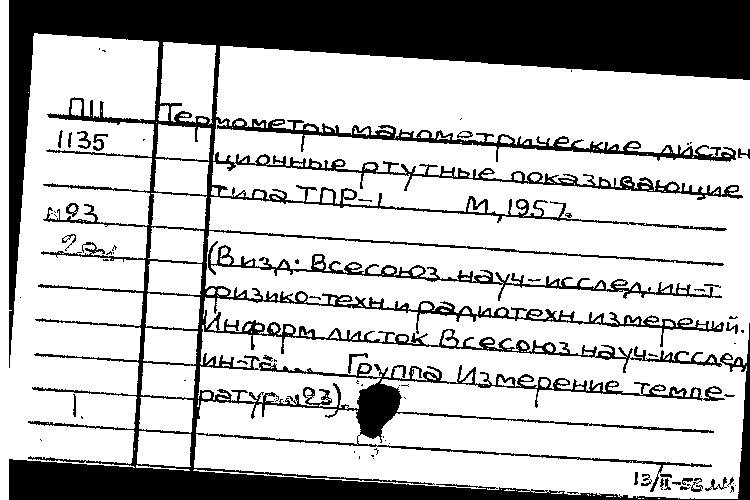 П11 Термометры манометрические дистан
1135 ционные ртутные показывающие
типа ТПР-1 М., 1957.
№23
2 экз
(В изд: Всесоюз. науч-исслед. ин-т
физико-техн. и радиотехн. измерений.
Информ листок Всесоюз. науч-исслед
ин-та.... Группа Измерение темпе-
1 ратур. №23).
13/II-58